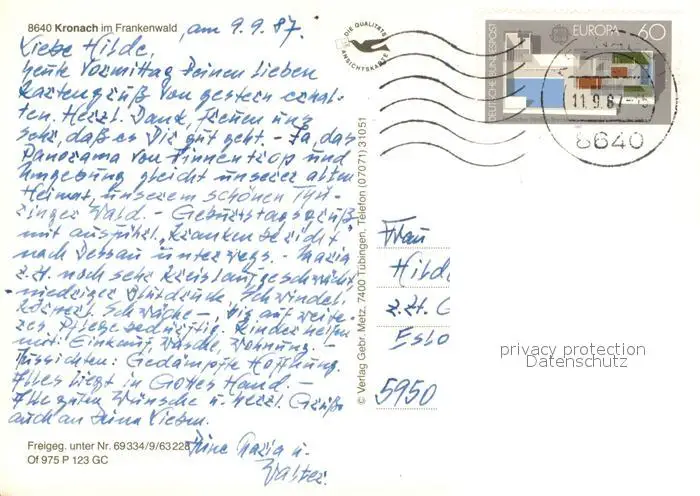 8640 Kronach im Frankenwald
am 9.9.87.
Liebe Hilde,
heute Vormittag Deinen lieben
Kartengruß von gestern erhal-
ten. Herzl. Dank, freuen uns
sehr, daß es Dir gut geht. - Ja, das
Panorama von Finnentrop und
Umgebung gleicht unserer alten
Heimat, unserem schönen Thü-
ringer Wald. - Geburtstagsgrüße
mit ausführl. "Krankenbericht"
nach Dessau unterwegs. - Maria
z.Zt. noch sehr kreislaufgeschwächt
- niedriger Blutdruck, Schwindel,
körperl. Schwäche -, bis auf weite-
res Pflegebedürftig. Kinder helfen
mit: Einkauf, Wäsche, Wohnung. -
Aussichten: Gedämpfte Hoffnung.
Alles liegt in Gottes Hand. -
Alle guten Wünsche u. herzl. Grüße
auch an Deine Lieben.
Deine Maria u.
Walter.
Freigeg. unter Nr. 69334/9/63228
Of 975 P 123 GC
© Verlag Gebr. Metz, 7400 Tübingen, Telefon (07071) 31051
DIE QUALITÄTS
ANSICHTSKARTE
DEUTSCHE BUNDESPOST
EUROPA
60
11.9.87
8640
Frau
Hilde
z.Zt.
Eslo
5950
privacy protection
Datenschutz